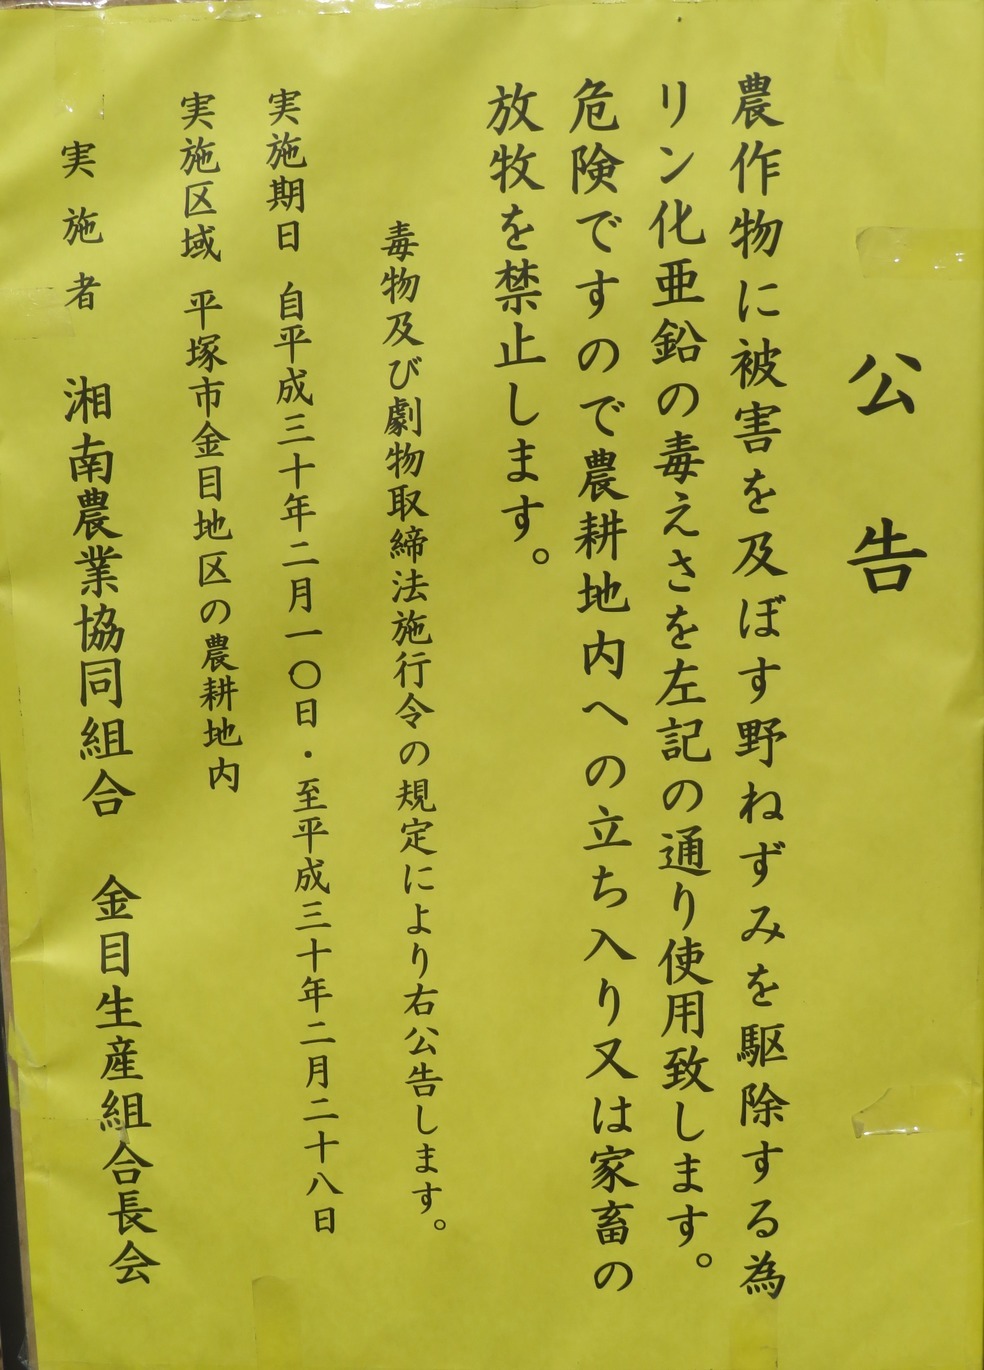 公告
農作物に被害を及ぼす野ねずみを駆除する為
リン化亜鉛の毒えさを左記の通り使用致します。
危険ですので農耕地内への立ち入り又は家畜の
放牧を禁止します。
毒物及び劇物取締法施行令の規定により右公告します。
実施期日 自平成三十年二月一〇日・至平成三十年二月二十八日
実施区域 平塚市金目地区の農耕地内
実施者 湘南農業協同組合 金目生産組合長会